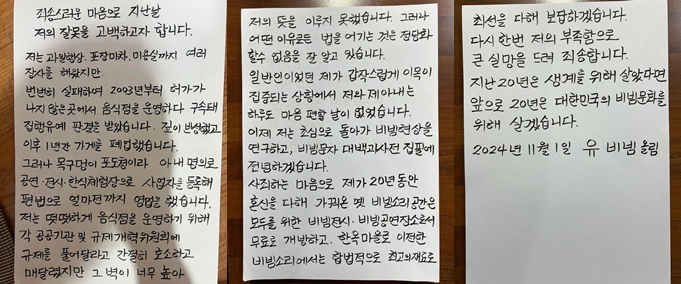 죄송스러운 마음으로 지난날
저의 잘못을 고백하고자 합니다.
저는 과일행상, 포장마차, 미용실까지 여러
장사를 해왔지만
번번히 실패하여 2003년부터 허가가
나지 않은곳에서 음식점을 운영하다 구속돼
집행유예 판결을 받았습니다. 깊이 반성했고
이후 1년간 가게를 폐업했습니다.
그러나 목구멍이 포도청이라 아내 명의로
공연·전시·한식체험장으로 사업자를 등록해
편법으로 얼마전까지 영업을 했습니다.
저는 떳떳하게 음식점을 운영하기 위해
각 공공기관 및 규제개혁위원회에
규제를 풀어달라고 간절히 호소하고
매달렸지만 그 벽이 너무 높아
저의 뜻을 이루지 못했습니다. 그러나
어떤 이유로도 법을 어기는 것은 정당화
할수 없음을 잘 알고 있습니다.
일반인이었던 제가 갑작스럽게 이목이
집중되는 상황에서 저와 제아내는
하루도 마음 편할 날이 없었습니다.
이제 저는 초심으로 돌아가 비빔현장을
연구하고, 비빔문자 대백과사전 집필에
전념하겠습니다.
사죄하는 마음으로 제가 20년 동안
혼신을 다해 가꿔온 옛 비빔소리 공간은
모두를 위한 비빔전시·비빔공연장소로서
무료로 개방하고, 한옥마을로 이전한
비빔소리에서는 합법적으로 최고의 재료로
최선을 다해 보답하겠습니다.
다시 한번 저의 부족함으로
큰 실망을 드려 죄송합니다.
지난 20년은 생계를 위해 살았다면
앞으로 20년은 대한민국의 비빔문화를
위해 살겠습니다.
2024년 11월 1일 유 비빔 올림